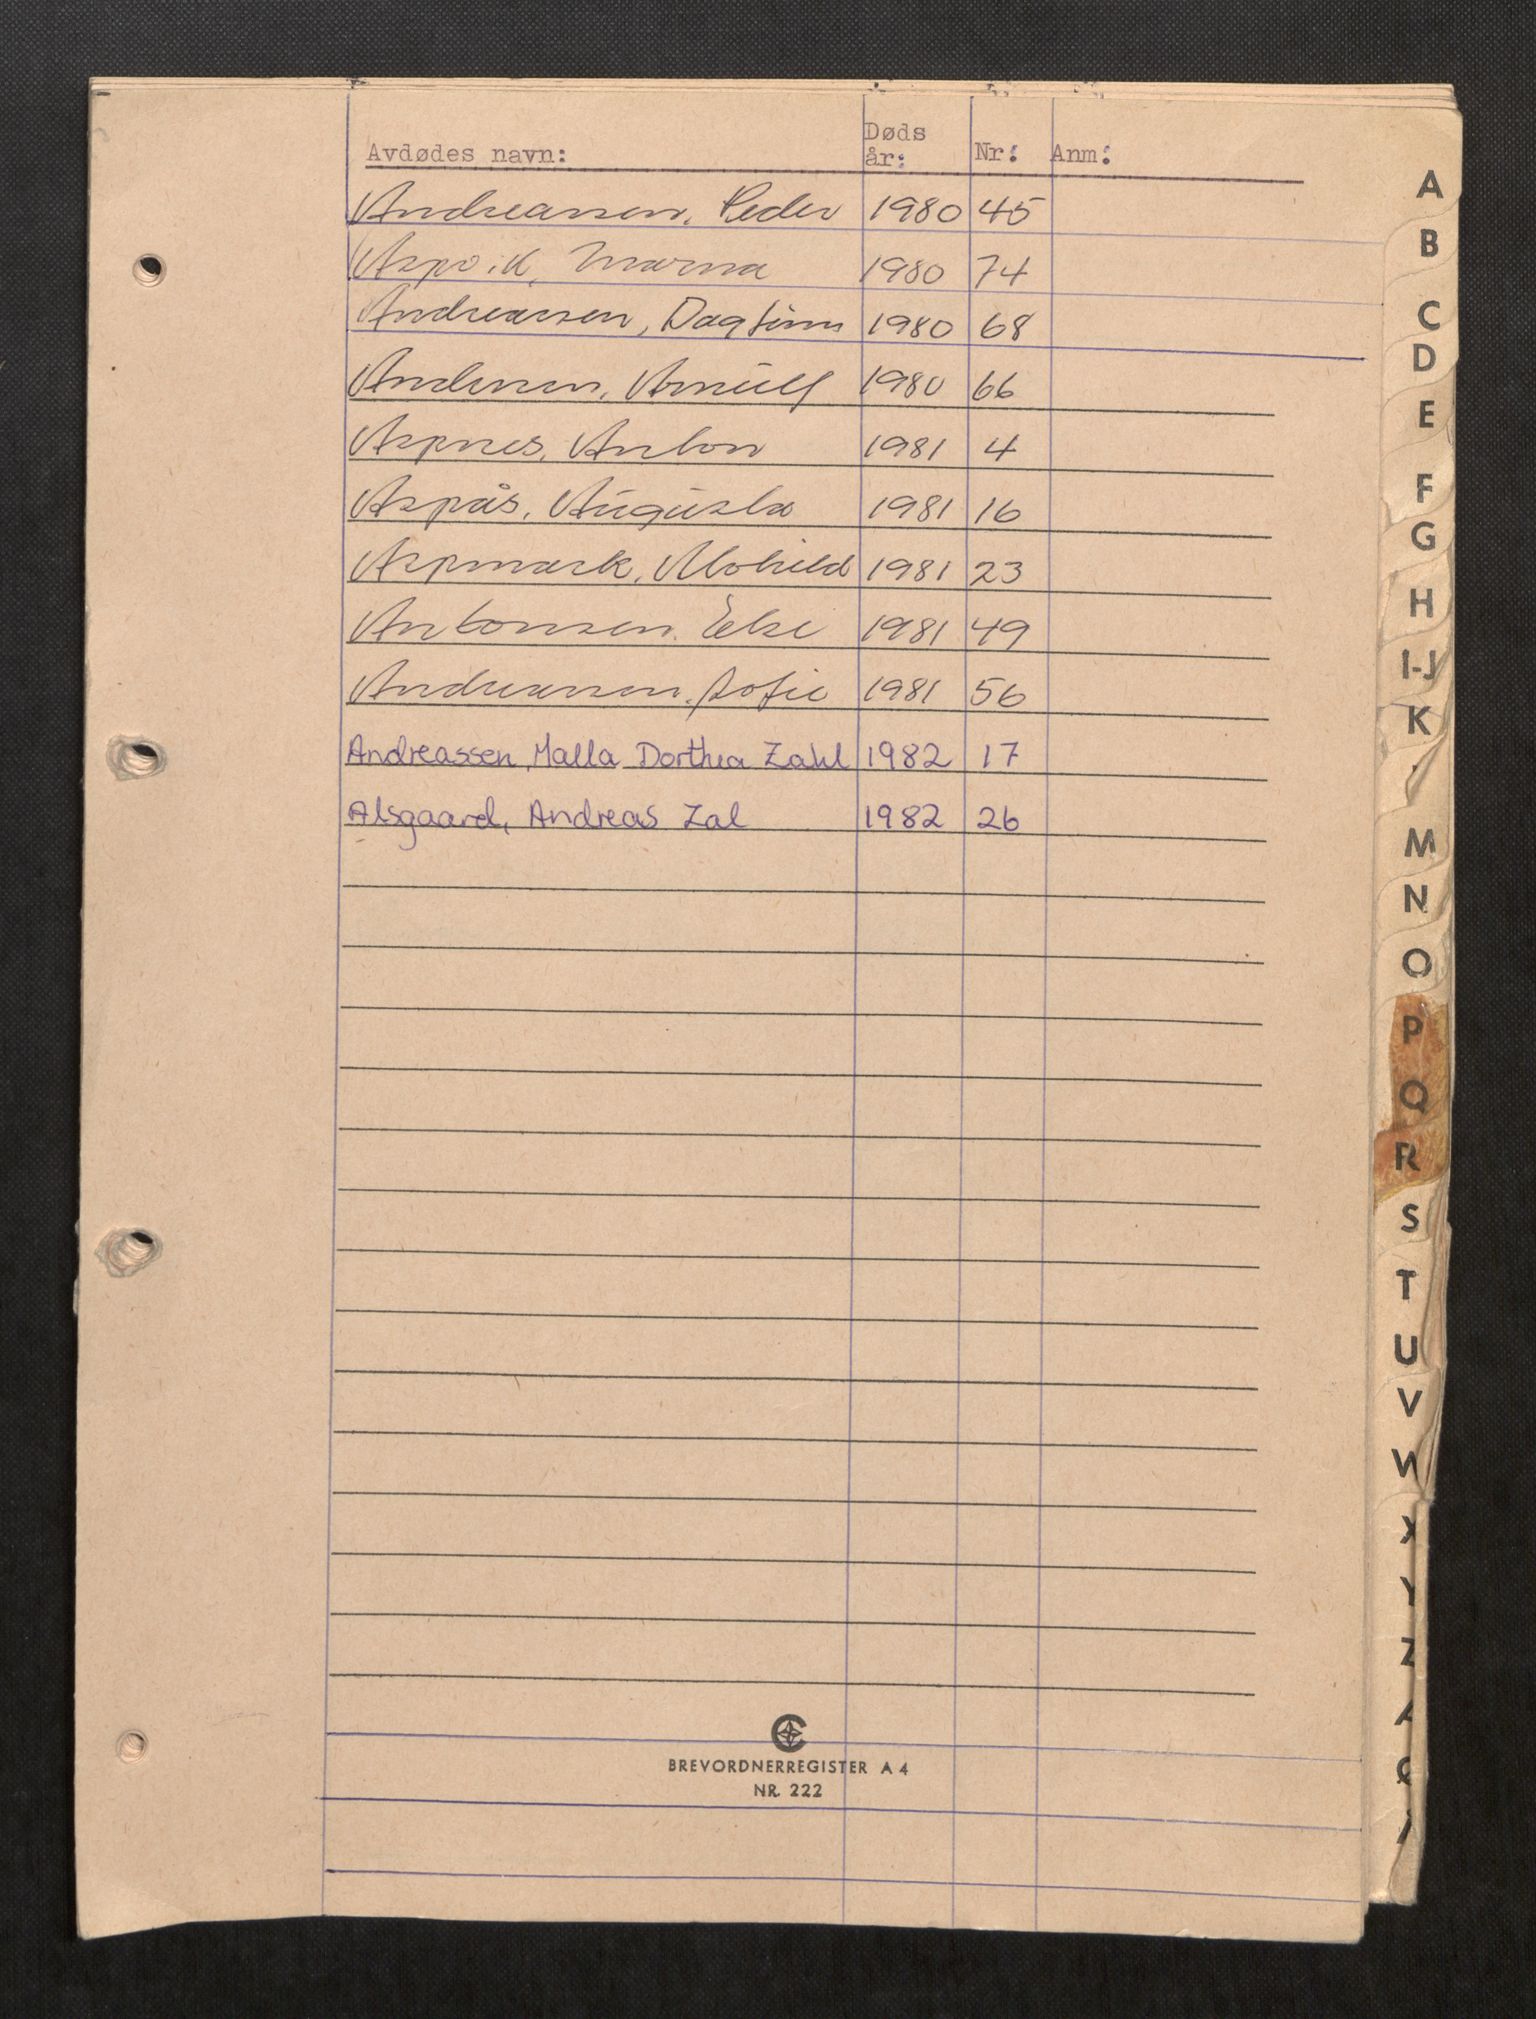 Døds
Avdødes navn: år: Nr: Anm:
Andreassen, Peder 1980 45
Marna 1980 74
Andreassen, Dagfinn 1980 68
Andersen, Arnulf 1980 66
Aspnes, Anton 1981 4
Aspås, Augusta 1981 16
Aspmark, Alvhild 1981 23
Antonsen, Else 1981 49
Andreassen, Sofie 1981 56
Andreassen, Malla Dorthea Zahl 1982 17
Alsgaard, Andreas Zal 1982 26
BREVORDNERREGISTER A 4
NR. 222
A
B
C
D
E
F
G
H
I-J
K
M
N
O
P
Q
R
S
T
U
V
W
X
Y
Z